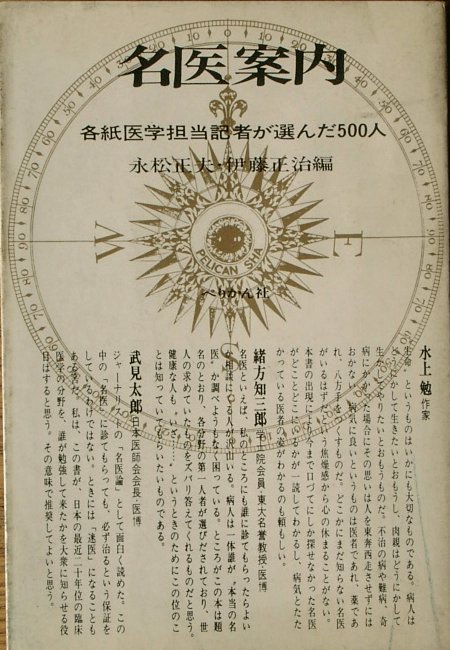 名医案内
各紙医学担当記者が選んだ500人
永松正夫・伊藤正治編
W
E
S
PELICAN SHA
ぺりかん社
水上 勉 作家
生命 というものはいかにも大切なものである。病人は
にかして生きたいとおもうし、肉親はどうにかして
生か してやりたいとおもうものだ。不治の病や難病、奇
病にかかった場合にその思いは人を東奔西走させずには
おかない。病気に良いというものは医者であれ、薬であ
れ、八方手をつくすものだ。どこかにまだ知らない名医
がいるはず いう焦燥感から心の休まることがない。
本書の出現に まで口づてにしか探せなかった名医
がどことどこに るかが一読してわかるし、病気とたた
かっている医者の姿がわかるのも頼もしい。
緒方知三郎 学士院会員・東大名誉教授・医博
名医といえば、私のところにも誰に診てもらったらよい
か相談にくる人が沢山いる。病人は一体誰が〝本当の名
医〟か調べようもなく困っている。ところがこの本は題
名のとおり、各分野の第一人者が選びだされており、世
人の求めていたものをズバリ答えてくれるものだと思う。
健康な人も、いざ、というときのためにこの位のこ
とは知っていてもらいたいものである。
武見太郎 日本医師会会長・医博
ジャーナリストの「名医論」として面白く読めた。この
中の「名医」に診てもらっても、必ず治るという保証を
しているわけではない。ときには「迷医」になることも
ある筈だ。私は、この書が、日本の最近二十年位の臨床
医学の分野を、誰が勉強して来たかを大衆に知らせる役
目はすると思う。その意味で推奨してよいと思う。